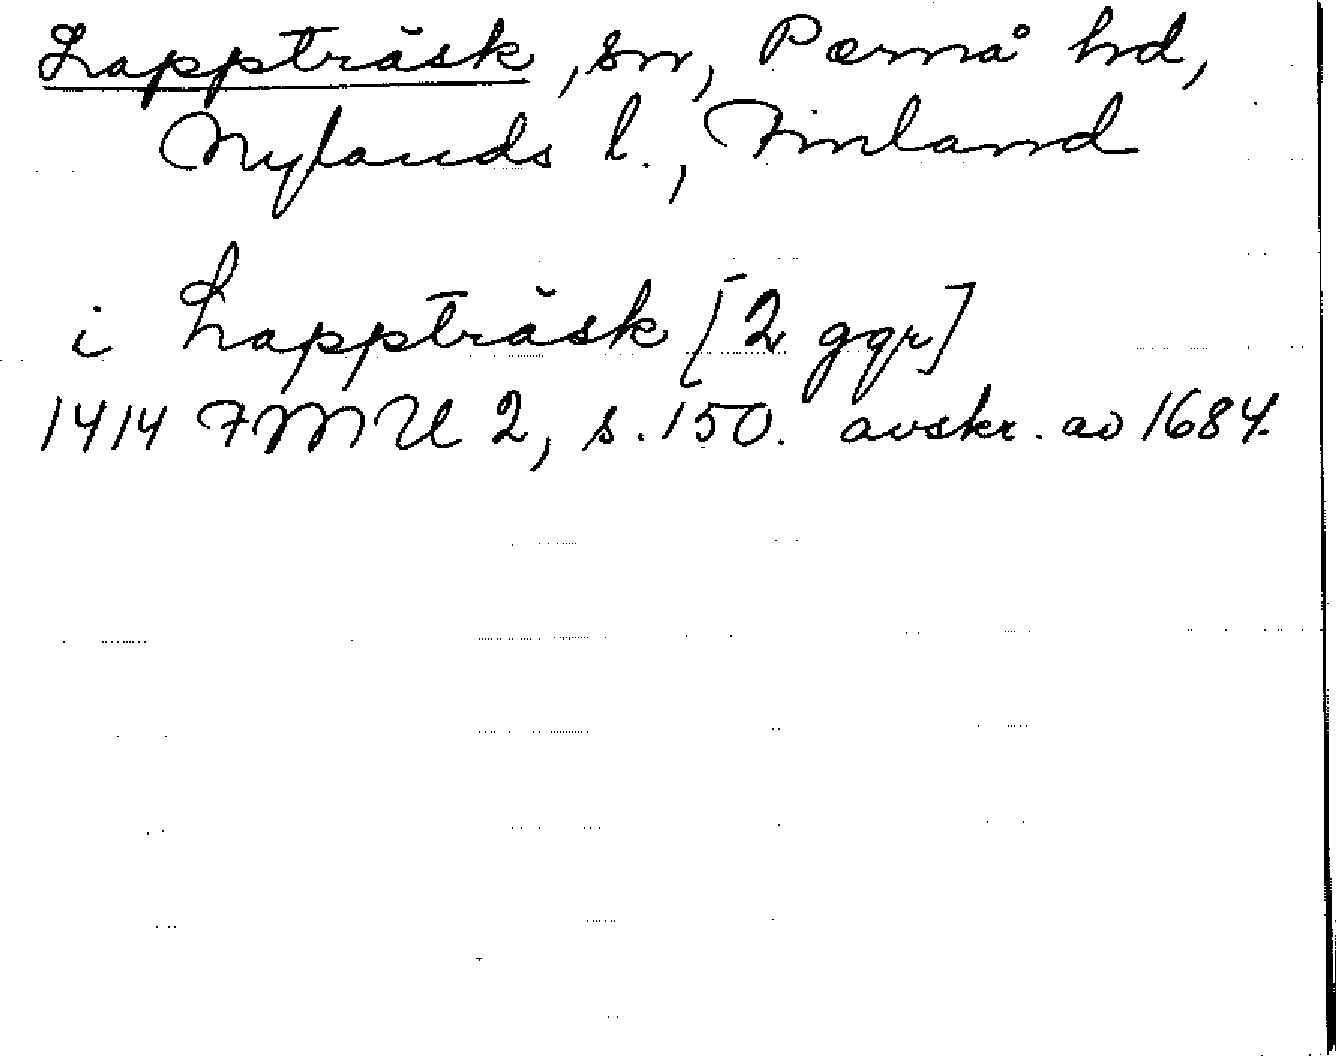 Lappträsk, sn, Pernå hd,
Nylands l., Finland
i Lappträsk [2 ggr]
1414 FMU 2, s. 150. avskr. av 1684.